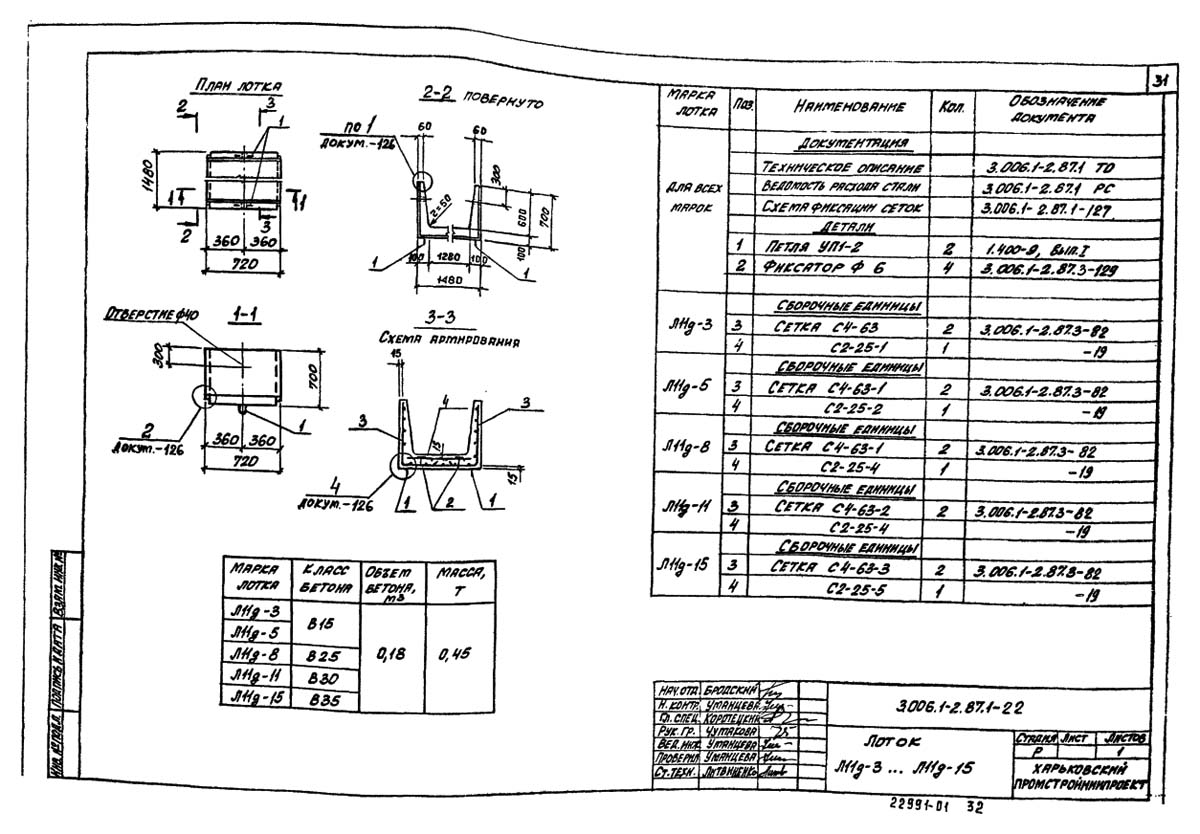 31
План лотка
2 3
1
1480
1 1
2 3
360 360
720
2-2 повернуто
по 1
докум.-126
60 60
300
600
700
100
1 1
100 1280 100
1480
Отверстие ф40
1-1
300
700
2
докум.-126
1
360 360
720
3-3
Схема армирования
15
4
3 3
15
15
4
докум.-126
1 2 1
Марка лотка Класс бетона Объем бетона, м3 Масса, т
Л11д-3 В15 0,18 0,45
Л11д-5
Л11д-8 В25
Л11д-11 В30
Л11д-15 В35
Марка лотка Поз. Наименование Кол. Обозначение документа
Для всех марок
Документация
Техническое описание 3.006.1-2.87.1 ТО
Ведомость расхода стали 3.006.1-2.87.1 РС
Схема фиксации сеток 3.006.1-2.87.1-127
Детали
1 Петля УП1-2 2 1.400-9, Вып.I
2 Фиксатор Ф 6 4 3.006.1-2.87.3-129
Сборочные единицы
Л11д-3 3 Сетка С4-63 2 3.006.1-2.87.3-82
4 С2-25-1 1 -19
Сборочные единицы
Л11д-5 3 Сетка С4-63-1 2 3.006.1-2.87.3-82
4 С2-25-2 1 -19
Сборочные единицы
Л11д-8 3 Сетка С4-63-1 2 3.006.1-2.87.3-82
4 С2-25-4 1 -19
Сборочные единицы
Л11д-11 3 Сетка С4-63-2 2 3.006.1-2.87.3-82
4 С2-25-4 -19
Сборочные единицы
Л11д-15 3 Сетка С4-63-3 2 3.006.1-2.87.3-82
4 С2-25-5 1 -19
Нач.отд. Бродский
Н. контр. Уманцева
Гл. спец. Коротецкий
Рук. гр. Чумакова
Вед. инж. Уманцева
Проверил Уманцева
Ст. техн. Литвиненко
3.006.1-2.87.1-22
Лоток
Л11д-3 ... Л11д-15
Стадия Лист Листов
Р 1
Харьковский
Промстройниипроект
22991-01 32
Инв. № подл. Подпись и дата Взам. инв. №